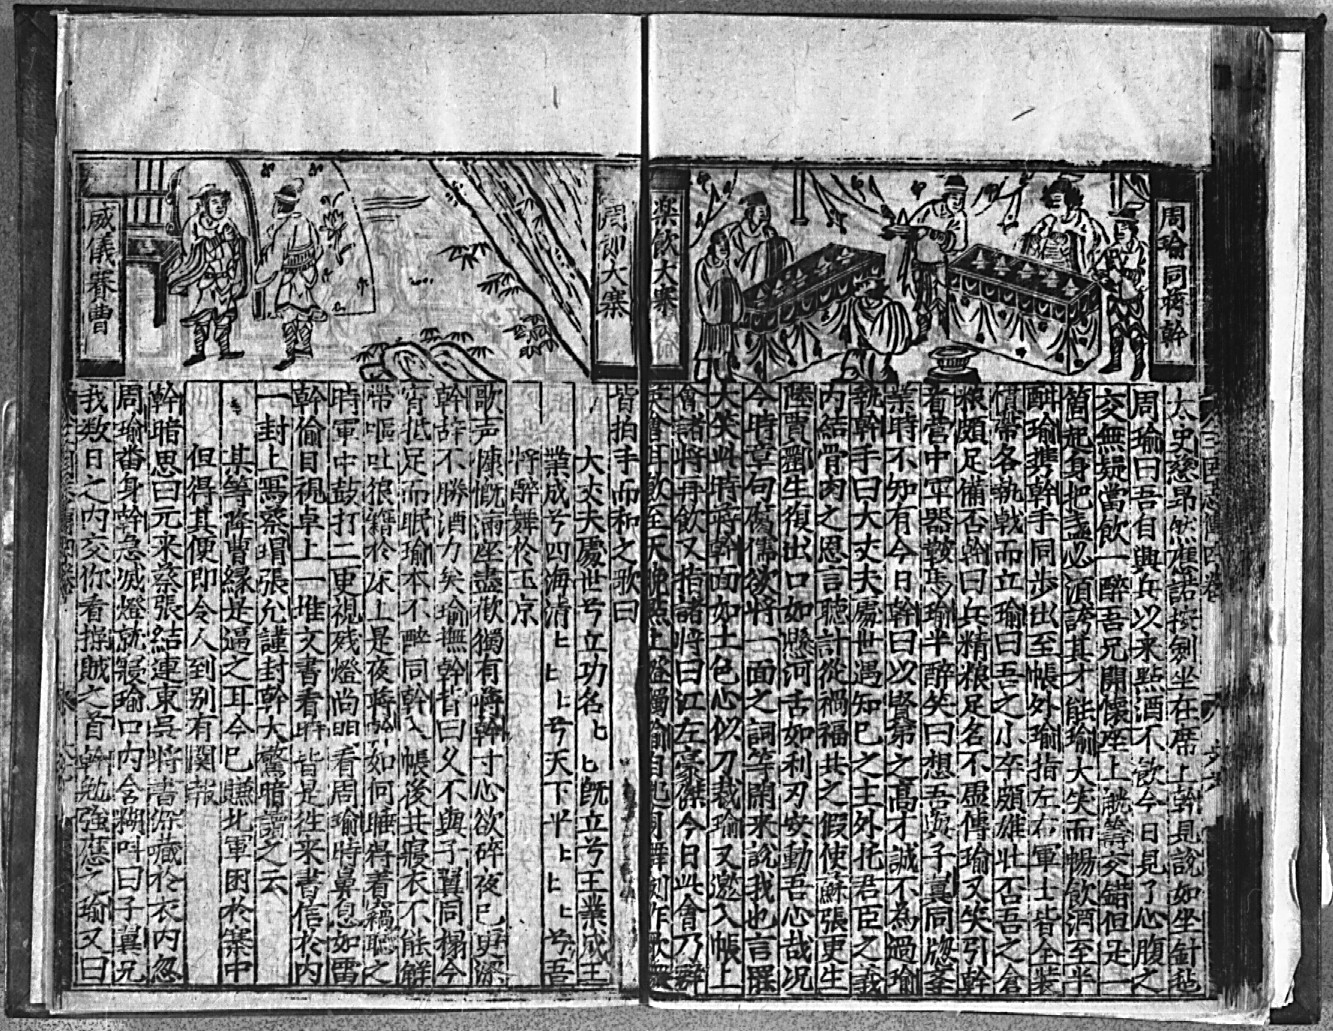 周瑜同蔣幹
楽飲大寨
太史慈昂然應諾按劍坐在席上幹見說如坐針毡
周瑜曰吾自興兵以来點酒不飲今日見了心腹之
交無疑當飲一醉吾兄開懷座上觥籌交錯但是一
箇起身把盞必須誇其才能瑜大笑而暢飲酒至半
酣瑜携幹手同步出至帳外瑜指左右軍士皆全装
慣帶各執戟而立瑜曰吾之小卒頗雄壮否吾之倉
粮頗足備否幹曰兵精粮足名不虛傳瑜又笑引幹
看营中軍器鞍馬瑜半醉笑曰想吾與子真同窓𦻒
業時不知有今日幹曰以賢弟之高才誠不為過瑜
執幹手曰大丈夫處世遇知己之主外托君臣之義
内結骨肉之恩言聽計從禍福共之假使蘇張更生
陸賈酈生復出口如懸河舌如利刃安動吾心哉况
今時章句腐儒欲將一面之詞等閑来說我也言罷
大笑此時蔣幹面如土色心似刀裁瑜又邀入帳上
會諸將再飲又指諸將曰江左豪傑今日此會乃群
英會耳飲至天晚點上燈燭瑜自起同舞劍作歌衆
周郎大寨
威儀賽曹
皆拍手而和之歌曰
大丈夫處世兮立功名匕匕既立兮王業成王
業成兮四海清匕匕匕兮天下平匕匕匕兮吾
將醉舞於玉京
歌声慷慨滿座盡歡獨有蔣幹寸心欲碎夜已更深
幹辞不勝酒力矣瑜撫幹背曰久不與子翼同榻今
宵抵足而眠瑜本不醉同幹入帳後共寢衣不能解
帶嘔吐狼籍於床上是夜蔣幹如何睡得着窃聽之
時軍中鼓打二更視残燈尚明看周瑜時鼻息如雷
幹偷目視卓上一堆文書看時皆是往来書信於内
一封上寫蔡瑁張允謹封幹大驚暗讀之云
某等降曹縁是逼之耳今已賺北軍困於寨中
但得其便即令人到别有関報
幹暗思曰元来蔡張結連東吳將書僻藏於衣内忽
周瑜畨身幹急滅燈就寢瑜口内含糊呌曰子翼兄
我数日之内交你看操賊之首幹勉強應之瑜又曰